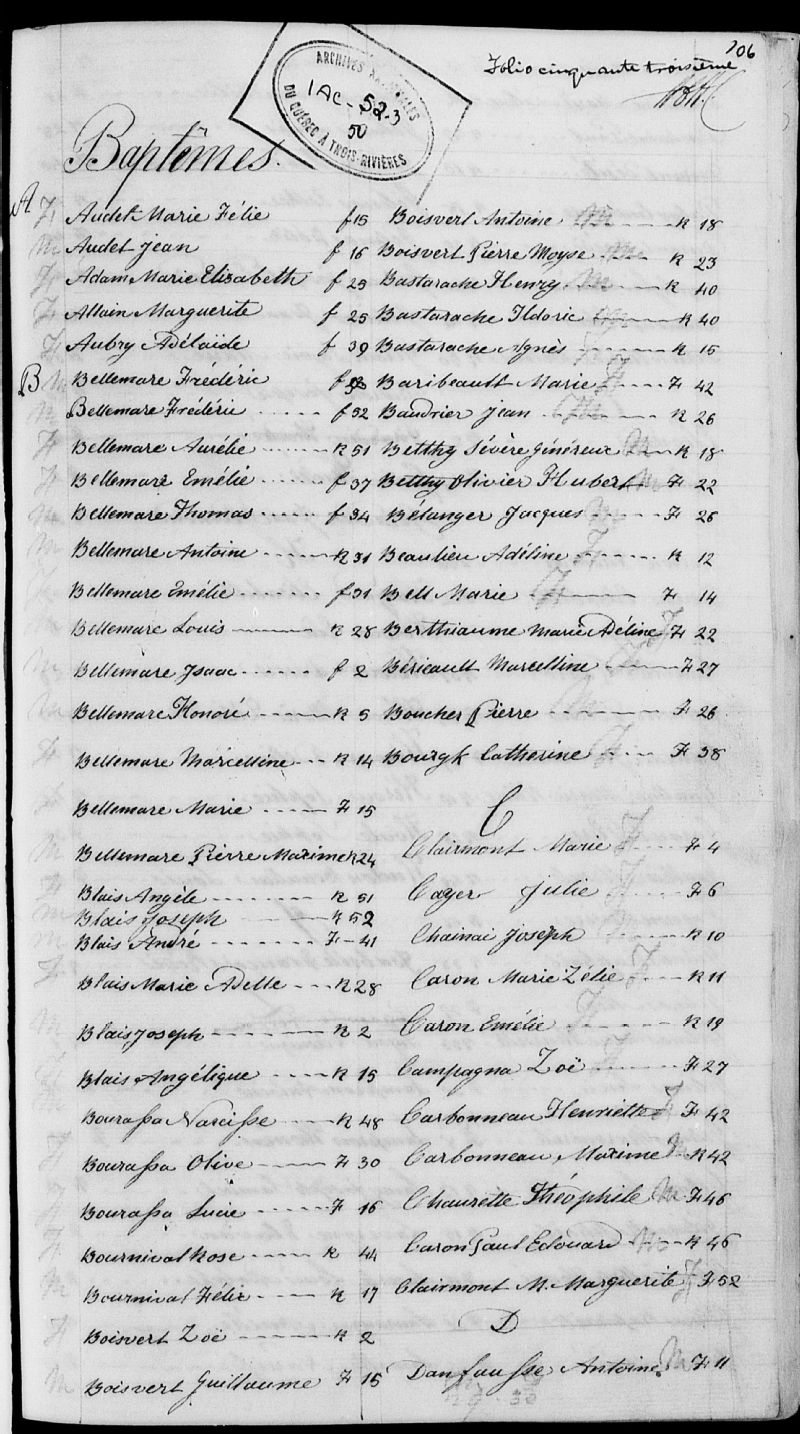 106
Folio cinquante troisième
ARCHIVES NATIONALES
1AC-52-3
50
DU QUÉBEC À TROIS-RIVIÈRES
Baptêmes.
A
F Audet Marie Félie f 15
M Audet Jean f 16
F Adam Marie Elizabeth f 25
F Allain Marguerite f 25
F Aubry Adélaïde f 39
B
M Bellemare Frédéric f
M Bellemare Frédéric ...... f 52
F Bellemare Aurélie ...... R 51
F Bellemare Emélie ...... f 37
M Bellemare Thomas ...... f 34
M Bellemare Antoine ...... R 31
F Bellemare Emélie ...... f 31
M Bellemare Louis ------ R 28
M Bellemare Isaac ...... f 2
M Bellemare Honoré ------ R 5
F Bellemare Marcelline --- R 14
Bellemare Marie ------ F 15
M Bellemare Pierre Maxime R 24
F Blais Angèle ------ R 51
M Blais Joseph ------ R 52
M Blais André ------ F - 41
F Blais Marie Adelle --- R 28
M Blais Joseph ------ R 2
F Blais Angélique ---- R 15
Bourassa Narcisse ---- R 48
F Bourassa Olive ---- F 30
F Bourassa Lucie ---- F 16
F Bournival Rose ----- R 44
M Bournival Félix ---- R 17
F Boisvert Zoë ------ R 2
M Boisvert Guillaume F 15
Boisvert Antoine M ---- R 18
Boisvert Pierre Moyse M --- R 23
Bastarache Henry M --- R 40
Bastarache Ildoric M ---- R 40
Bastarache Agnès F ---- R 15
Baribeault Marie F ---- F 42
Baudrier Jean M ---- R 26
Betthy Sévère Généreux M - R 18
Betthy Olivier Hubert M F 22
Bélanger Jacques M --- F 25
Beaulieu Adéline F ----- R 12
Bell Marie F ------ F 14
Berthiaume Marie Adéline F F 22
Béricault Marcelline F ---- F 27
Boucher Pierre M ------ F 26
Bourgk Catherine F --- F 38
C
Clairmont Marie F ---- F 4
Cayer Julie F ---- F 6
Chainai Joseph ------ R 10
Caron Marie Zélie F --- R 11
Caron Emélie F ----- R 19
Campagna Zoë F ----- F 27
Carbonneau Henriette F F 42
Carbonneau Maxime M - R 42
Chaurette Théophile M - F 46
Caron Paul Edouard M --- R 46
Clairmont M. Marguerite F F 52
D
Danfausse Antoine M F 11